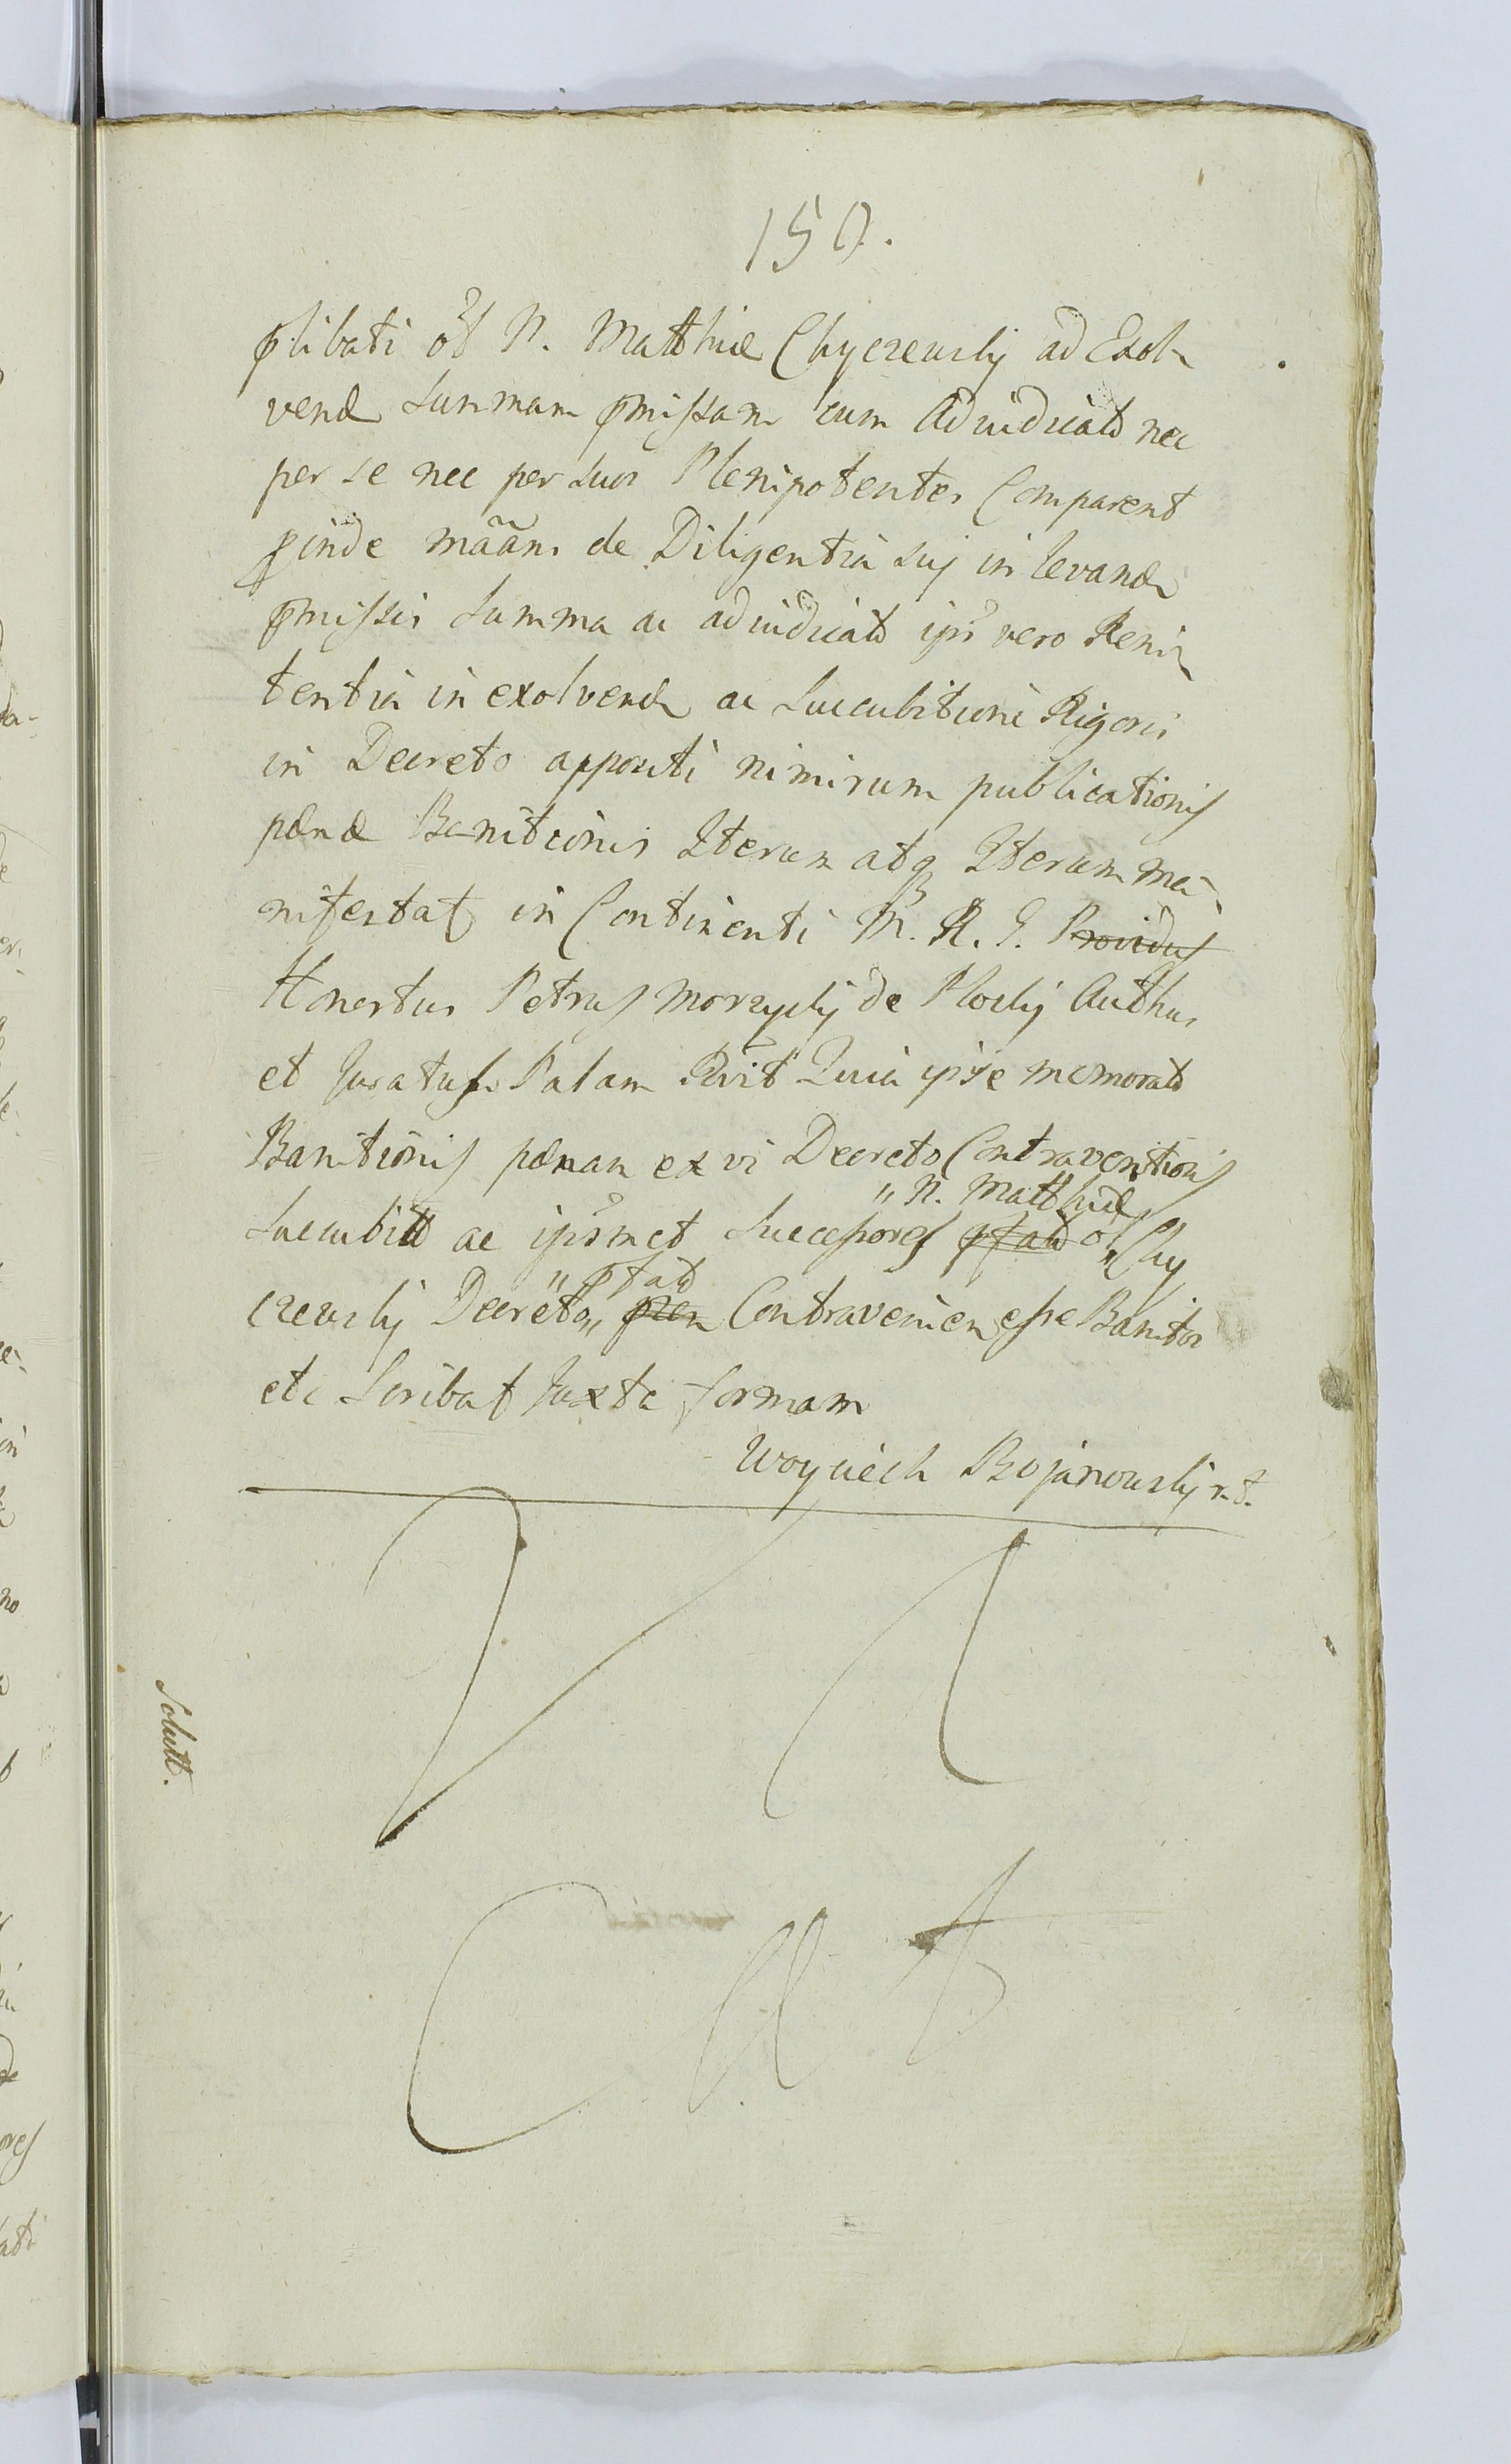 150.
plibati ol N. Matthiæ Chyczewsky ad Exol
vend Summam pmissam cum Adiudicato nec
per se nec per suos Plenipotentes Comparent
pinde mãans de Diligentia sui in levand
pmissis Summa ac adiudicato ips vero Reni
tentia in exolvend ac Succubitioni Rigoris
in Decreto appositi nimirum publicationis
pænæ Banitionis Iterum atq Iterum ma
nifestat in Continenti M. R. G. Providus
Honestus Petrus Morzycky de Plocky Authus
et Juratus Palam Rvit Quia ipse memorato
Banitionis pænam ex vi Decreto Contraventionis
" N. Matthiæ
Succubitt ac ipsmet Successores pfato ol " Chy
" pfato
czewsky Decreto " Contravenien esse Banitos
etc Scribat Juxta formam
Woyciech Bojanowsky
Schutt.